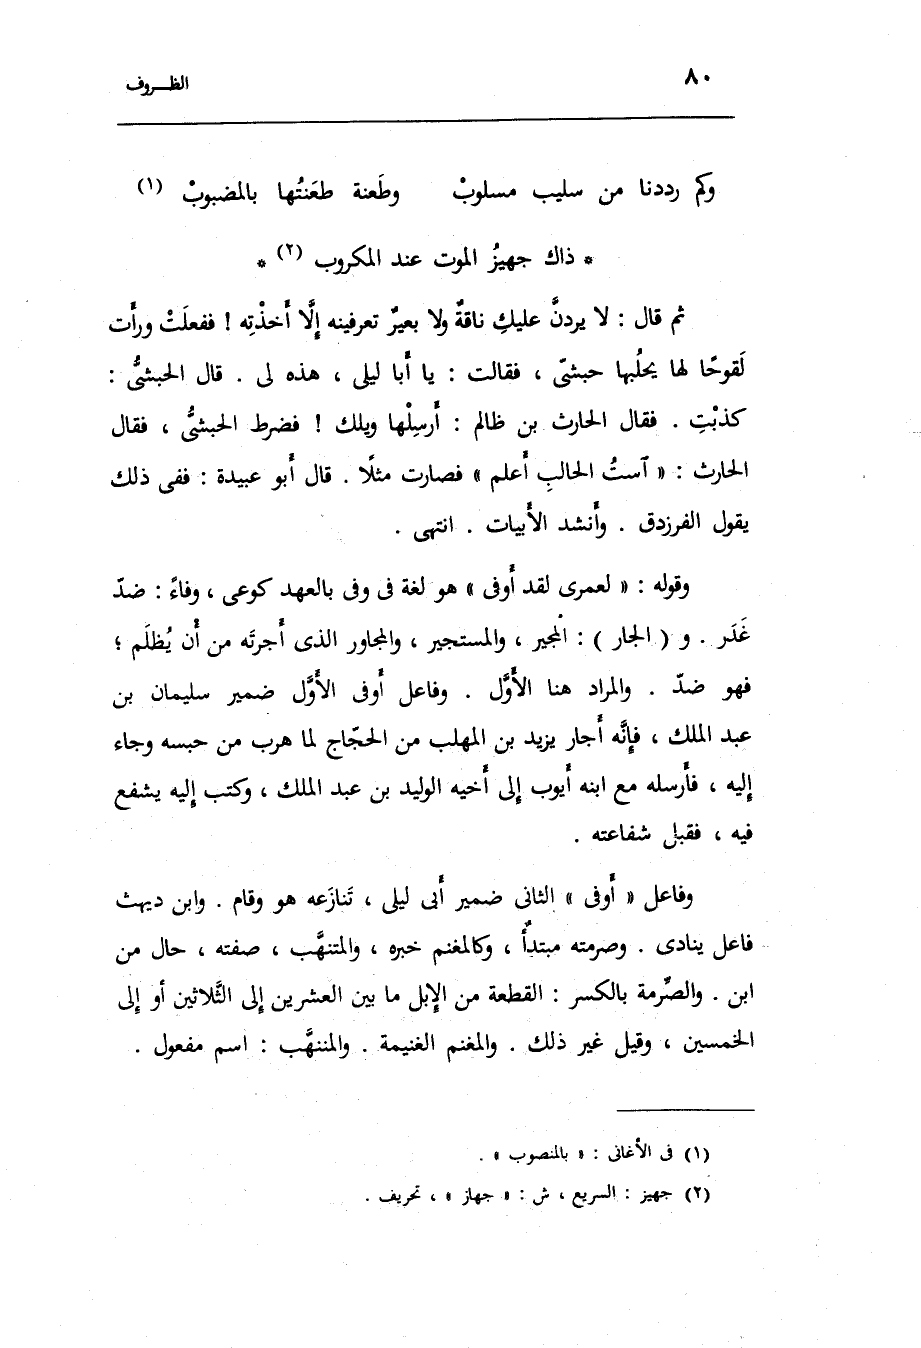 ٨٠
الظـــروف
وكم رددنا من سليب مسلوبْ وطَعنة طعَنتُها بالمضبوبْ (١)
* ذاك جهيزُ الموت عند المكروب (٢) *
ثم قال : لا يردنَّ عليكِ ناقةٌ ولا بعيرٌ تعرفينه إلَّا أَخذْتِه ! ففعلَتْ ورأَت
لَقوحًا لها يحلُبها حبشىّ ، فقالت : يا أَبا ليلى ، هذه لى . قال الحبشىُّ :
كذبْتِ . فقال الحارث بن ظالم : أَرسِلْها ويلك ! فضرط الحبشىُّ ، فقال
الحارث : « آستُ الحالبِ أَعلم » فصارت مثلًا . قال أَبو عبيدة : ففى ذلك
يقول الفرزدق . وأَنشد الأَبيات . انتهى .
وقوله : « لعمرى لقد أَوفى » هو لغة فى وفى بالعهد كوعى ، وفاءً : ضدّ
غَدَر . و ( الجار ) : المُجير ، والمستجير ، والمجاور الذى أَجرتَه من أَن يُظلَم ؛
فهو ضدّ . والمراد هنا الأَوَّل . وفاعل أَوفى الأَوَّل ضمير سليمان بن
عبد الملك ، فإِنَّه أَجار يزيد بن المهلب من الحجّاج لما هرب من حبسه وجاء
إِليه ، فأَرسله مع ابنه أَيوب إِلى أَخيه الوليد بن عبد الملك ، وكتب إِليه يشفع
فيه ، فقبل شفاعته .
وفاعل « أَوفى » الثانى ضمير أَبى ليلى ، تَنازَعه هو وقام . وابن ديهث
فاعل ينادى . وصرمته مبتدأٌ ، وكالمغنم خبره ، والمتنهَّب ، صفته ، حال من
ابن . والصِّرمة بالكسر : القطعة من الإِبل ما بين العشرين إِلى الثَّلاثين أو إِلى
الخمسين ، وقيل غير ذلك . والمغنم الغنيمة . والمتنهَّب : اسم مفعول .
(١) فى الأغانى : « بالمنصوب » .
(٢) جهيز : السريع ، ش : « جهاز » ، تحريف .